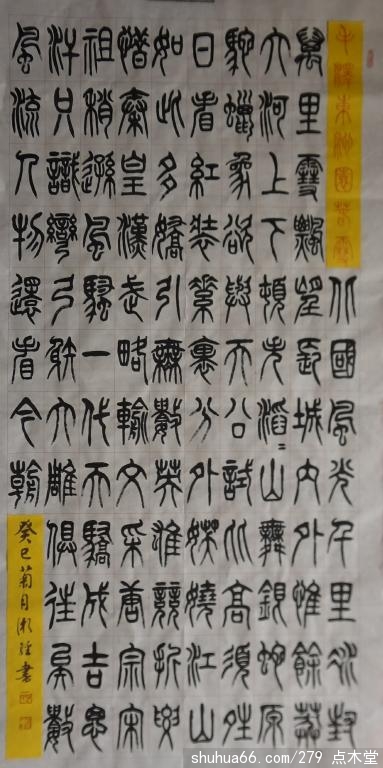 毛澤東沁園春雪
北國風光千里冰封
萬里雪飄望長城内外惟餘莽
大河上下頓失滔〻山舞銀蛇原
馳蠟象欲與天公試比高須晴
日看紅裝素裹分外妖嬈江山
如此多嬌引無數英雄競折腰
惜秦皇漢武略輸文采唐宗宋
祖稍遜風騷一代天驕成吉思
汗只識彎弓射大雕俱往矣數
風流人物還看今朝
癸巳菊月書
shuhua66.com/279 点木堂